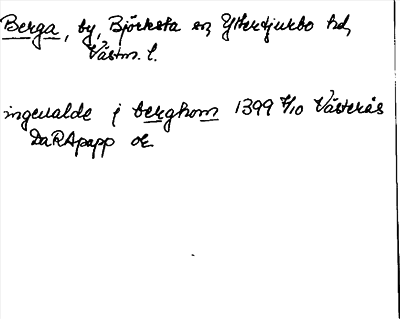 Berga, by, Björksta sn Yttertjurbo hd,
Västm. l.
ingeualde j berghom 1399 7/10 Västerås
DaRApapp or.